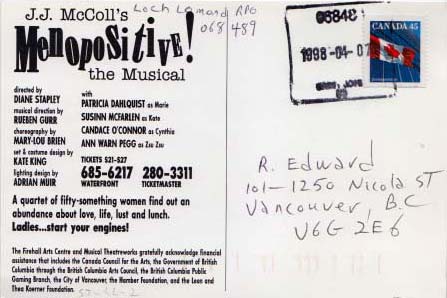 J.J. McColl's
Loch Lomond RPO
068489
Menopositive!
the Musical
directed by
DIANE STAPLEY
musical direction by
RUEBEN GURR
choreography by
MARY-LOU BRIEN
set & costume design by
KATE KING
lighting design by
ADRIAN MUIR
with
PATRICIA DAHLQUIST as Marie
SUSINN MCFARLEN as Kate
CANDACE O'CONNOR as Cynthia
ANN WARN PEGG as Zsu Zsu
TICKETS $21-$27
685-6217 280-3311
WATERFRONT TICKETMASTER
A quartet of fifty-something women find out an
abundance about love, life, lust and lunch.
Ladies...start your engines!
The Firehall Arts Centre and Musical Theatreworks gratefully acknowledge financial
assistance that includes the Canada Council for the Arts, the Government of British
Columbia through the British Columbia Arts Council, the British Columbia Public
Gaming Branch, the City of Vancouver, the Hamber Foundation, and the Leon and
Thea Koerner Foundation.
06848
1998-04-0
CANADA 45
R. Edward
101-1250 Nicola ST
Vancouver, B.C.
V6G 2E6